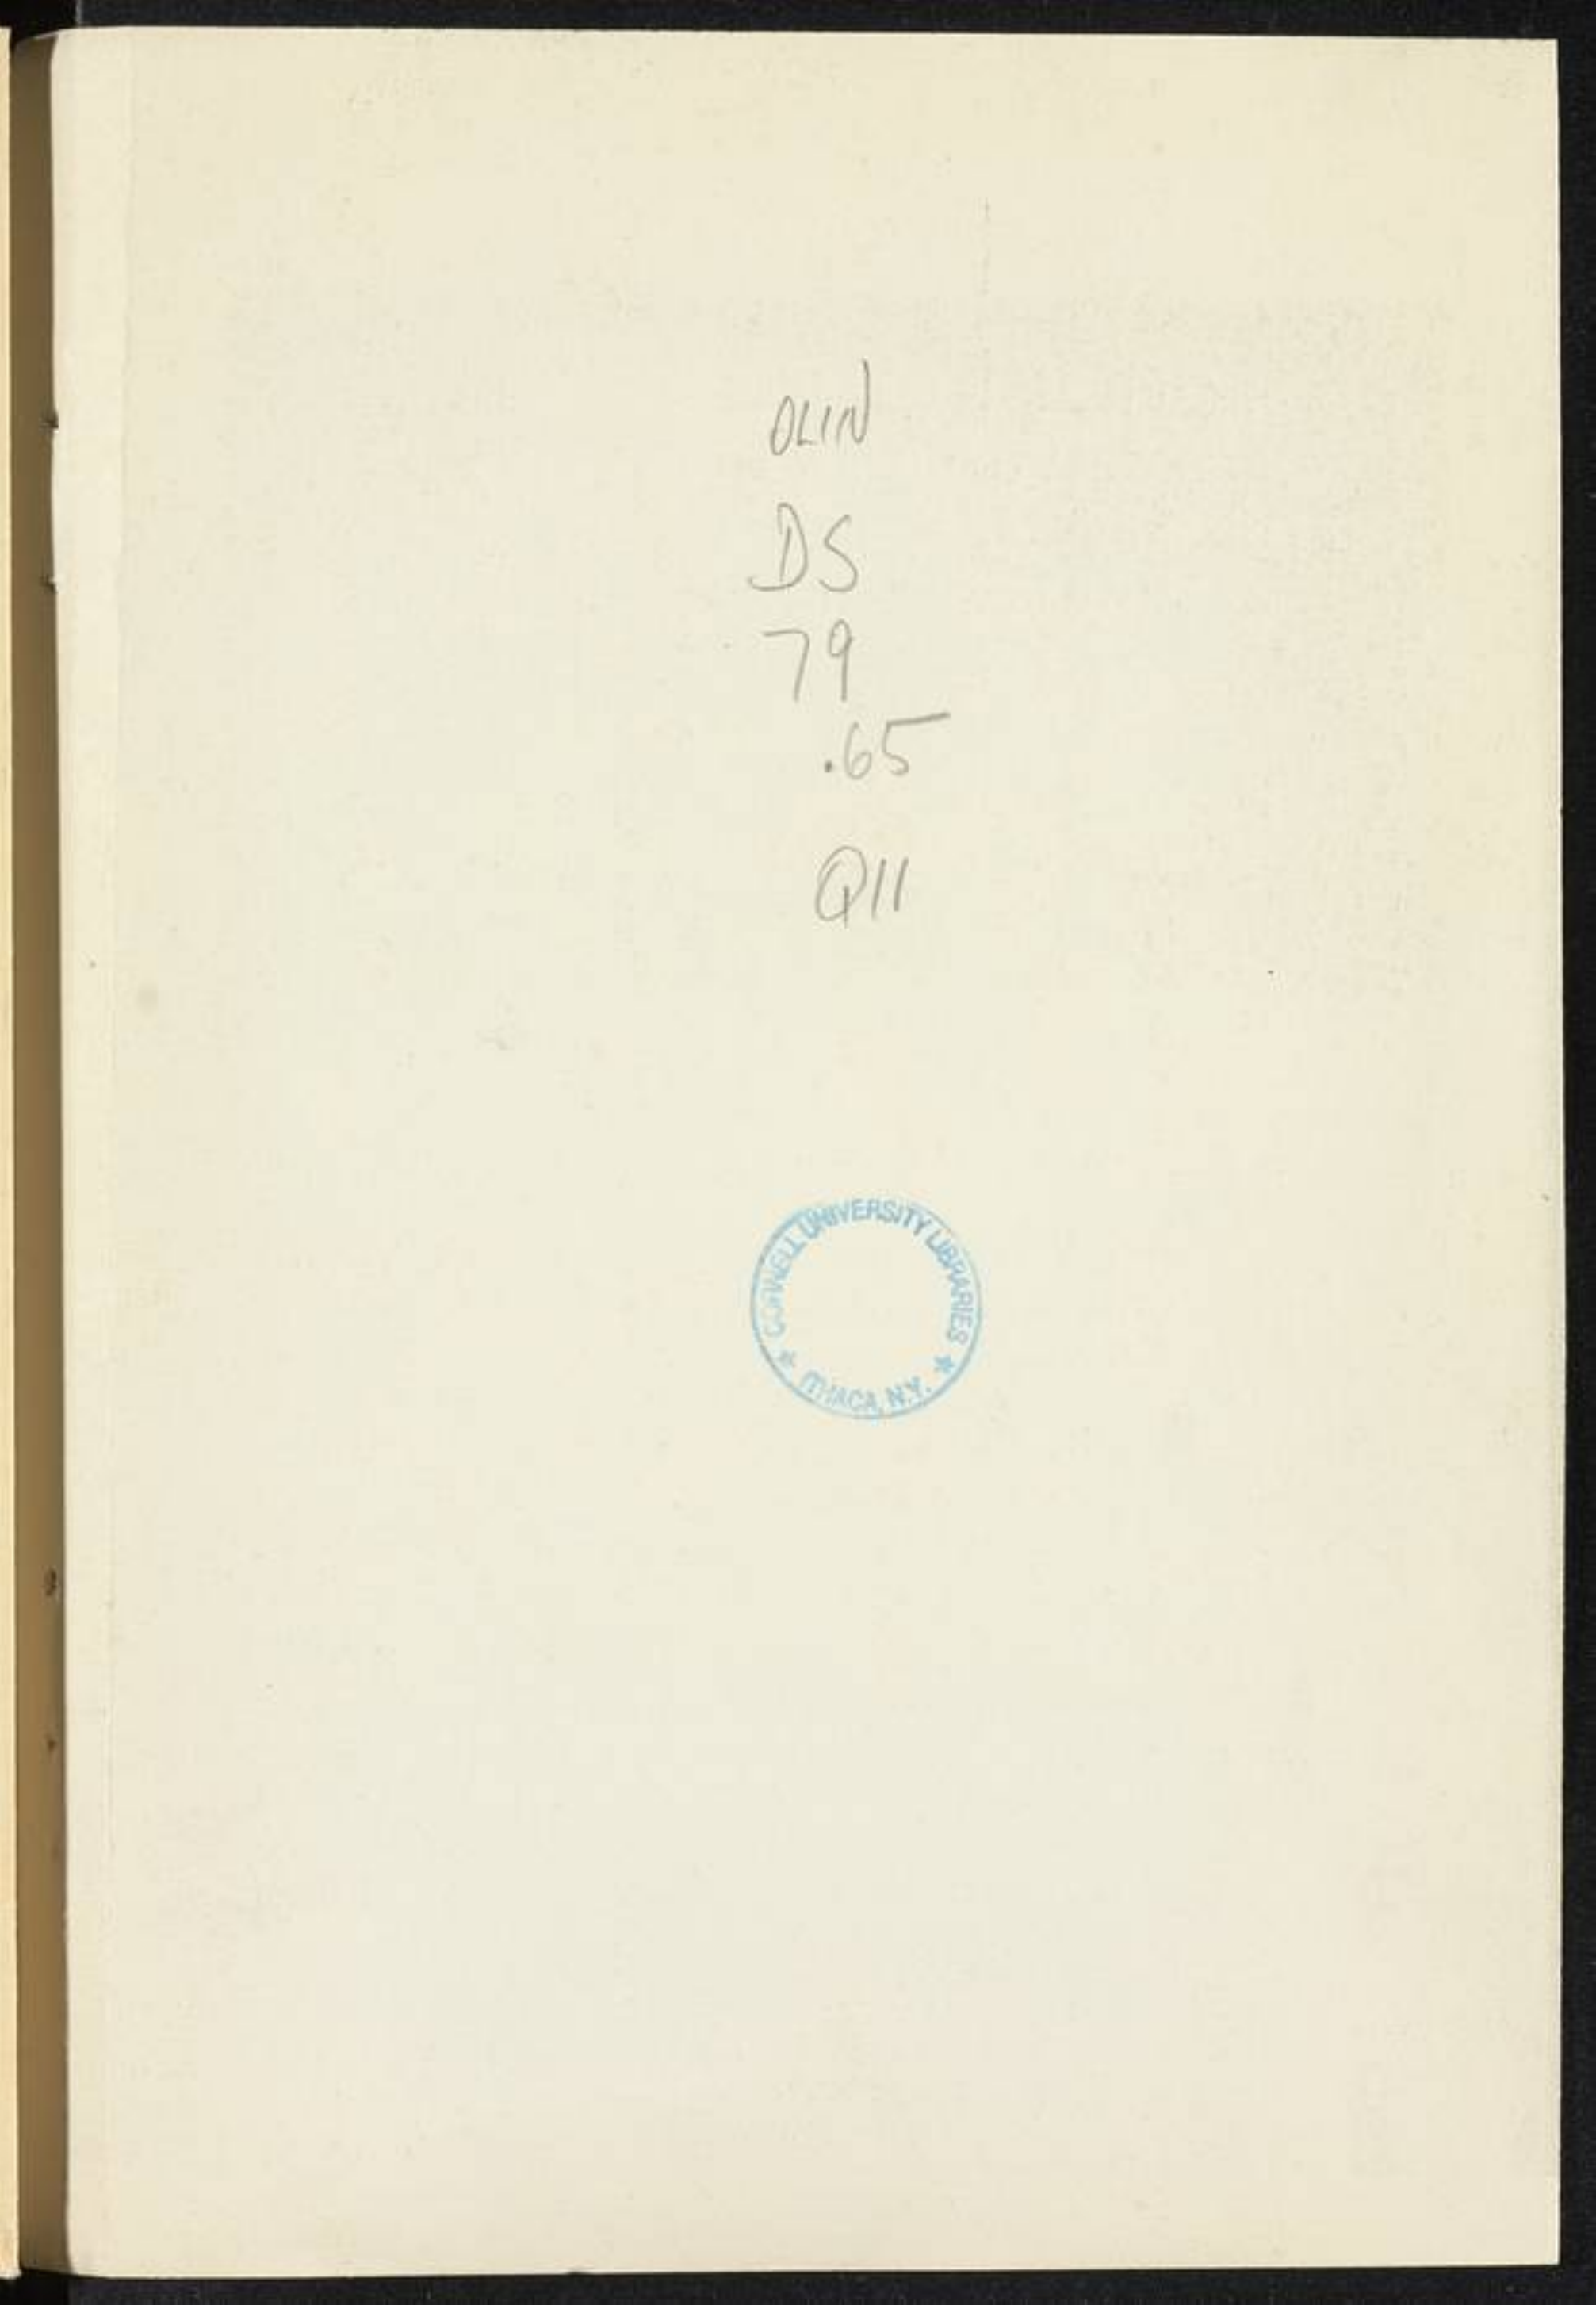 OLIN
DS
79
.65
Q11
CORNELL UNIVERSITY LIBRARIES
ITHACA, N.Y.